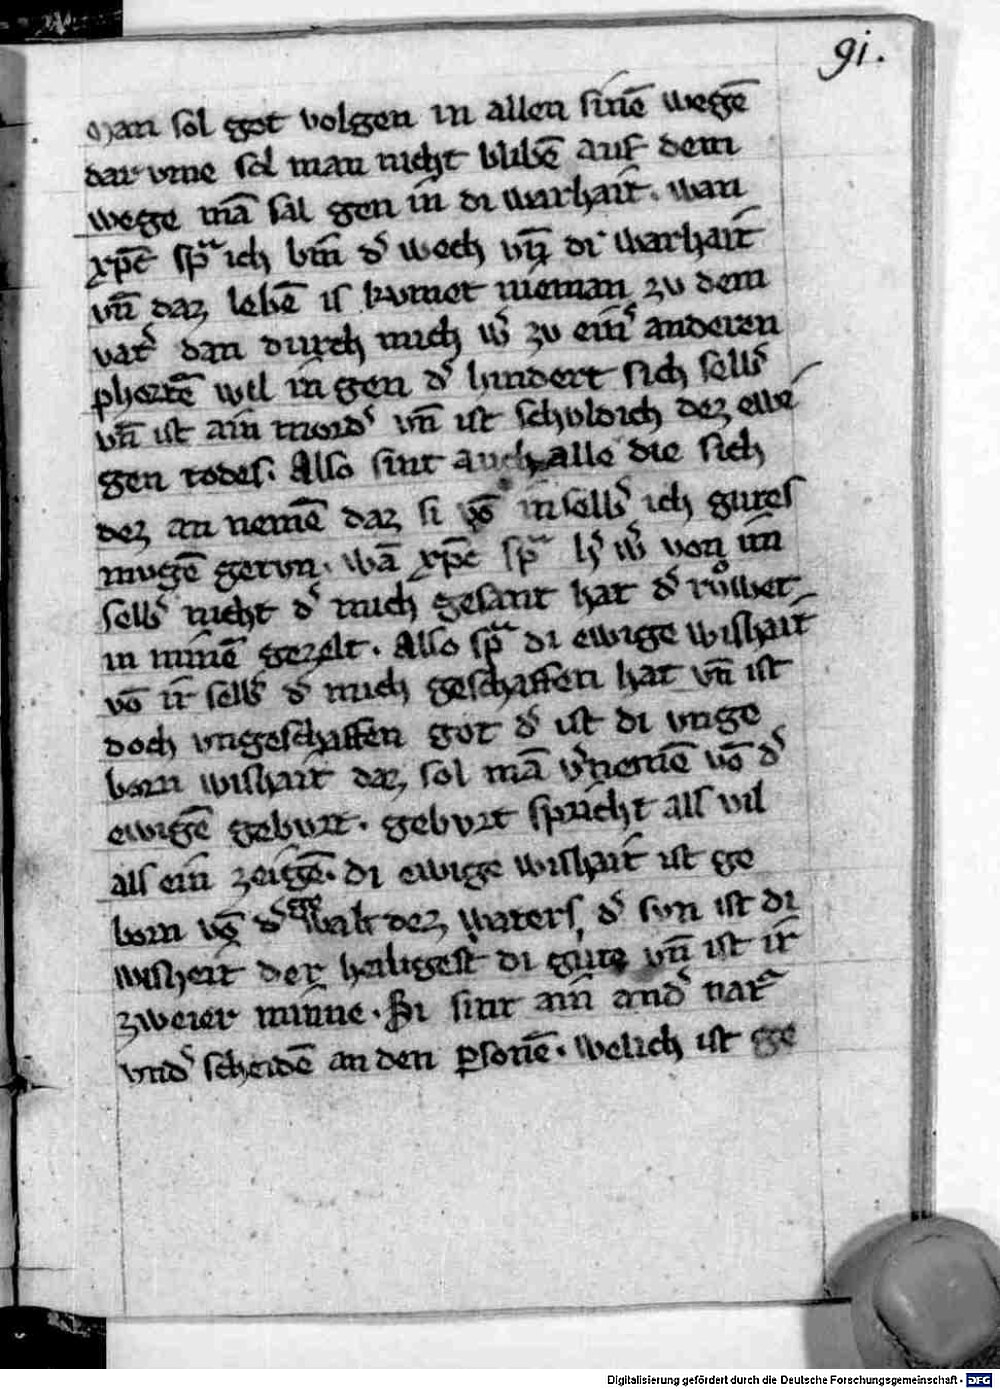 91.
Man sol got volgen in allen sinē wegē
dar vme sol man nicht blibē auf dem
wege mā sal gen in di warhait. wan
xp̄c spͣ ich bin dˢ wech vn̄ di warhait
vn̄ daz lebē is kvmet nieman zv dem
vatˢ dan durch mich wˢ zv einˢ anderen
phortē wil in gen dˢ hindert sich selbˢ
vn̄ ist ain mordˢ vn̄ ist schvldich dez ewi
gen todes. Also sint auch alle die sich
dez an nemē daz si vō in selbˢ ich gutes
mvgē getvn. wā xp̄c spͣ wˢ von im
selbˢ nicht dˢ mich gesant hat dˢ růwet
in minē gezelt. Also spͣ di ewige wishait
vō ir selbˢ dˢ mich geschaffen hat vn̄ ist
doch vngeschaffen got dˢ ist di vnge
born wishait daz sol mā vˢnemē vō dˢ
ewigē gebvrt. gebvrt spricht als vil
als ein zeigē. di ewige wishait ist ge
born vō dˢ gewalt dez vaters, dˢ svn ist di
wisheit der heiligest di gute vn̄ ist ir
zweier minne. Si sint ain and natˢ
vndˢ scheidē an den psonē. welich ist ge
Digitalisierung gefördert durch die Deutsche Forschungsgemeinschaft - DFG